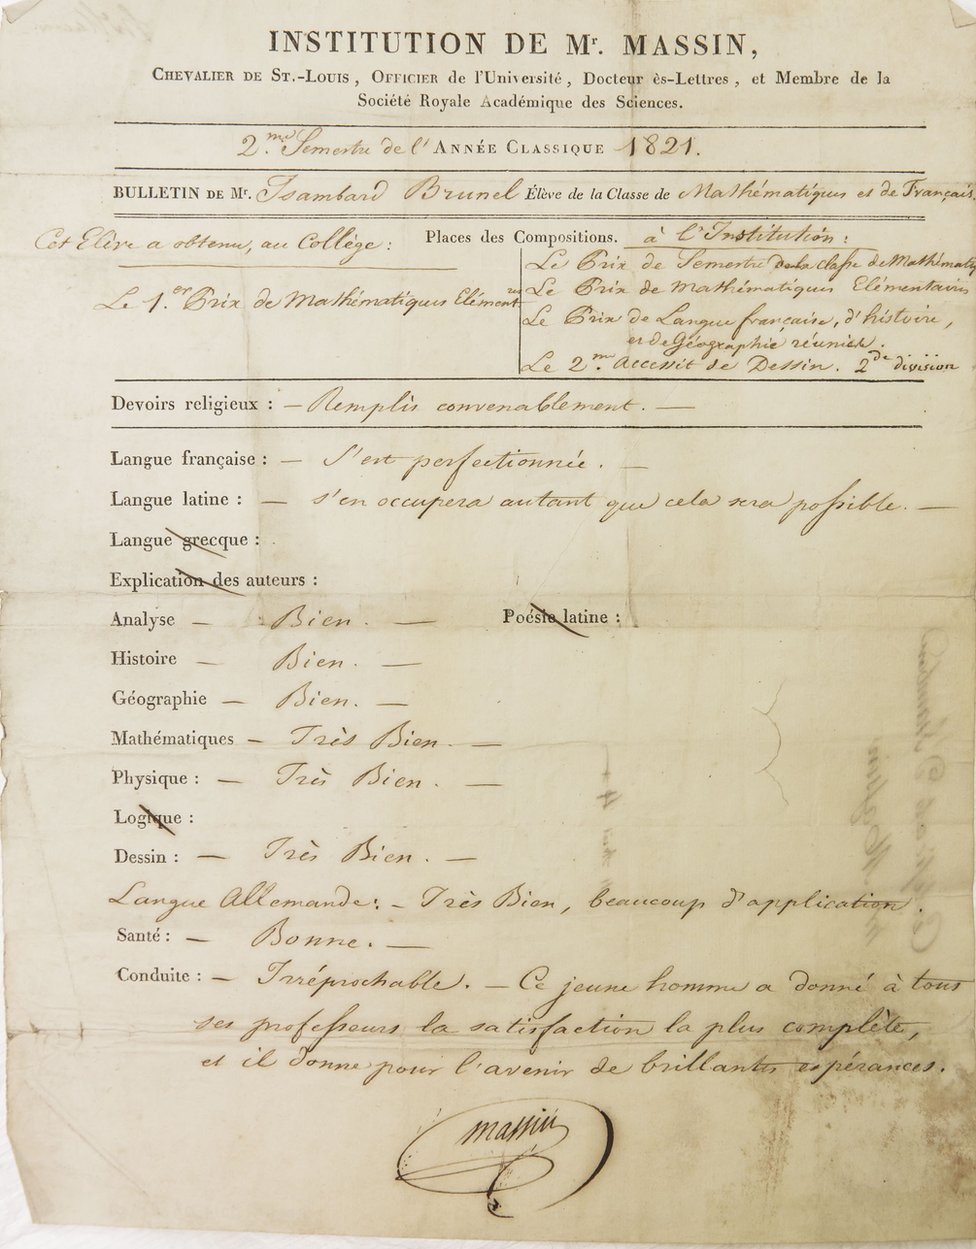 INSTITUTION DE Mr. MASSIN,
CHEVALIER DE ST.-LOUIS, OFFICIER de l'Université, Docteur ès-Lettres, et Membre de la
Société Royale Académique des Sciences.
2.me Semestre de l'ANNÉE CLASSIQUE 1821.
BULLETIN DE Mr. Isambard Brunel Élève de la Classe de Mathématiques et de Français
Cet Elève a obtenu, au Collège: Places des Compositions. à l'Institution:
Le Prix de Semestre de la Classe de Mathémati
Le 1.er Prix de Mathématiques Elémentres
Le Prix de Mathématiques Elémentaires
Le Prix de Langue française, d'histoire,
et de Géographie réunies.
Le 2.me Accessit de Dessin. 2de division
Devoirs religieux : — Remplis convenablement. —
Langue française : — S'est perfectionnée. —
Langue latine : — s'en occupera autant que cela sera possible. —
Langue grecque :
Explication des auteurs :
Analyse — Bien. — Poésie latine :
Histoire — Bien. —
Géographie — Bien. —
Mathématiques — Très Bien. —
Physique : — Très Bien. —
Logique :
Dessin : — Très Bien. —
Langue Allemande: — Très Bien, beaucoup d'application.
Santé : — Bonne. —
Conduite : — Irréprochable. — Ce jeune homme a donné à tous
ses professeurs la satisfaction la plus complète,
et il donne pour l'avenir de brillantes espérances.
Massin